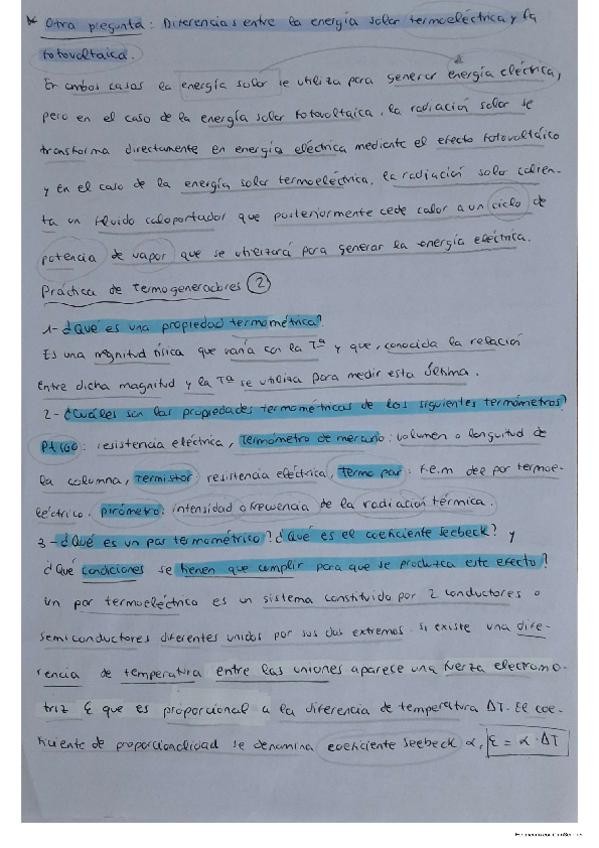 * Otra pregunta: Diferencias entre la energía solar termoeléctrica y la
fotovoltaica.
En ambos casos la energía solar se utiliza para generar energía eléctrica,
pero en el caso de la energía solar fotovoltaica, la radiación solar se
transforma directamente en energía eléctrica mediante el efecto fotovoltáico
y en el caso de la energía solar termoeléctrica, la radiación solar calien-
ta un fluido caloportador que posteriormente cede calor a un ciclo de
potencia de vapor que se utilizará para generar la energía eléctrica.
Práctica de Termogeneradores (2)
1- ¿Qué es una propiedad termométrica?
Es una magnitud física que varía con la Tª y que, conocida la relación
entre dicha magnitud y la Tª se utiliza para medir esta última.
2- ¿Cuáles son las propiedades termométricas de los siguientes termómetros?
Pt 100: resistencia eléctrica, Termómetro de mercurio: volumen o longuitud de
la columna, Termistor resistencia eléctrica, Termo par: f.e.m del par termoe-
léctrico. pirómetro: intensidad o frecuencia de la radiación térmica.
3- ¿Qué es un par termométrico? ¿Qué es el coeficiente Seebeck? y
¿Qué condiciones se tienen que cumplir para que se produzca este efecto?
Un par termoeléctrico es un sistema constituido por 2 conductores o
semiconductores diferentes unidos por sus dos extremos. Si existe una dife-
rencia de temperatura entre las uniones aparece una fuerza electromo-
triz ε que es proporcional a la diferencia de temperatura ΔT. El coe-
ficiente de proporcionalidad se denomina coeficiente Seebeck α, ε = α · ΔT